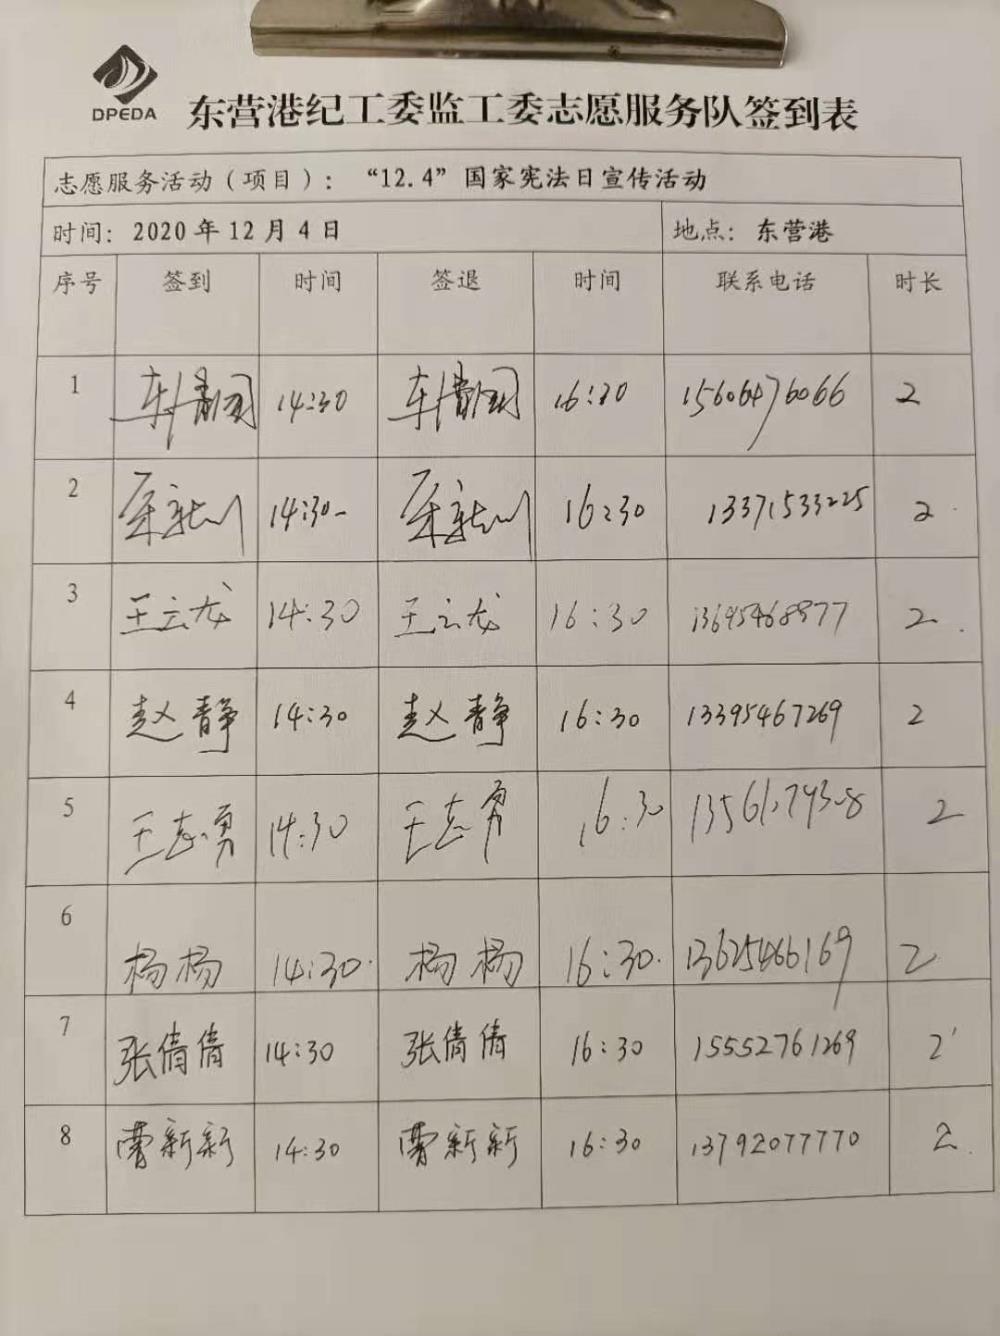 DPEDA
东营港纪工委监工委志愿服务队签到表
志愿服务活动（项目）：“12.4”国家宪法日宣传活动
时间：2020年12月4日 地点：东营港
序号 签到 时间 签退 时间 联系电话 时长
1 14:30 16:30 15606476066 2
2 14:30 16:30 13371533225 2
3 王云龙 14:30 王云龙 16:30 13695468877 2
4 赵静 14:30 赵静 16:30 13395467269 2
5 王志勇 14:30 王志勇 16:30 2
6 杨杨 14:30 杨杨 16:30 13625466169 2
7 张倩倩 14:30 张倩倩 16:30 15552761269 2
8 曹新新 14:30 曹新新 16:30 13792077770 2